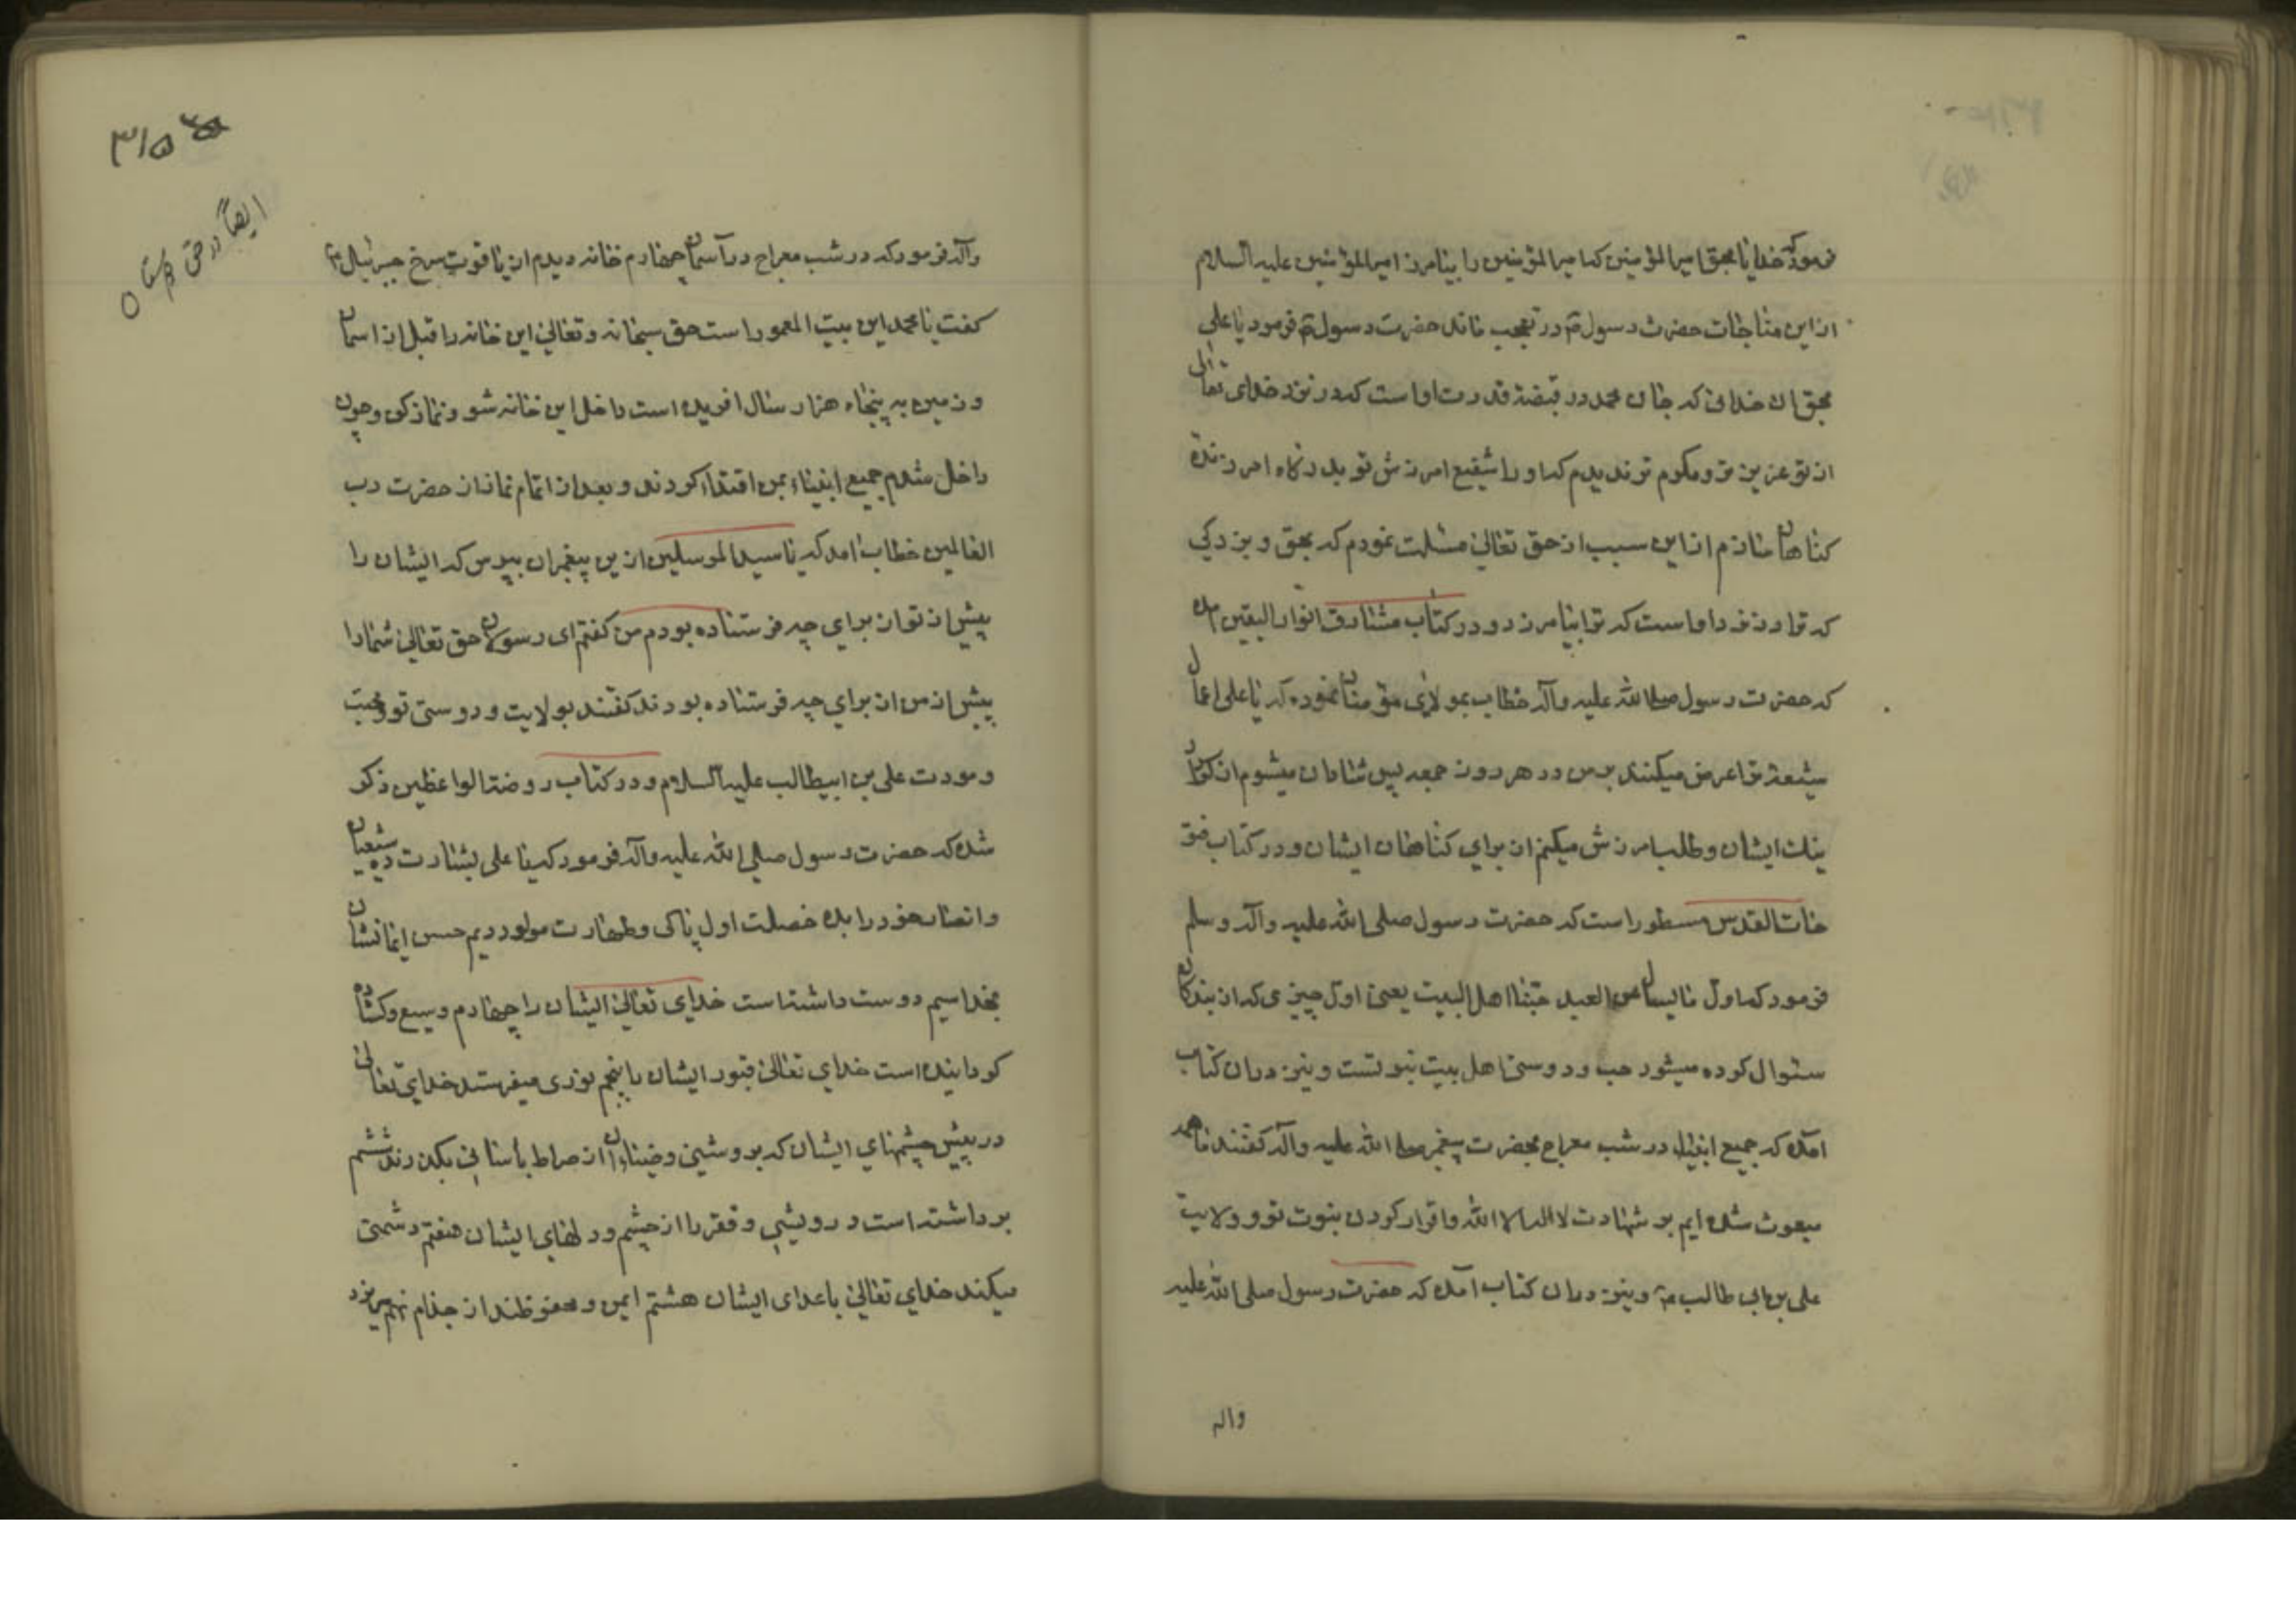 فرمود که خدایا بحق امیرالمؤمنین که امیرالمؤمنین را بیامرز امیرالمؤمنین علیه السلام
از این مناجات حضرت رسول ص در تعجب ماند حضرت رسول ص فرمود یا علی
بحق ان خدائی که جان محمد در قبضۀ قدرت اواست که در نزد خدای تعالی
از تو عزیزتر و مکرم تر ندیدم که او را شفیع امرزش تو بدرگاه امرزندۀ
کناهان سازم از این سبب از حق تعالی مسئلت نمودم که بحق و بزرکی
که ترا در نزد اواست که ترا بیامرزد و در کتاب مشارق انوار الیقین امده
که حضرت رسول صلی الله علیه وآله خطاب بمولای مؤمنان نموده که یا علی اعمال
شیعۀ ترا عرض میکنند بر من در هر روز جمعه پس شادان میشوم از کردار
نیک ایشان و طلب امرزش میکنم از برای کناهان ایشان و در کتاب فتو
حات القدس مسطور است که حضرت رسول صلی الله علیه وآله وسلم
فرمود که اول ما یسال عن العبد حبنا اهل البیت یعنی اول چیزی که از بندکان
سئوال کرده میشود حب و دوستی اهل بیت نبوتست و نیز در ان کتاب
امده که جمیع انبیاء در شب معراج بحضرت پیغمبر صلی الله علیه وآله کفتند ما همه
مبعوث شده ایم بر شهادت لا اله الا الله واقرار کردن بنبوت تو و ولایت
علی بن ابی طالب ع و نیز در ان کتاب امده که حضرت رسول صلی الله علیه
واله
۳۱۵
ایضاً در حق
وآله فرمود که در شب معراج در آسمان چهارم خانه دیدم از یاقوت سرخ جبرئیال ع
کفت یا محمد این بیت المعمور است حق سبحانه وتعالی این خانه را قبل از اسمان
و زمین به پنجاه هزار سال افریده است داخل این خانه شو و نماز کن و چون
داخل شدم جمیع انبیاء بمن اقتداء کردند و بعد از اتمام نماز از حضرت رب
العالمین خطاب امد که یا سید المرسلین ازین پیغمبران بپرس که ایشان را
پیش از تو از برای چه فرستاده بودم من کفتم ای رسولان حق تعالی شما را
پیش از من از برای چه فرستاده بودند کفتند بولایت و دوستی تو و محبت
و مودت علی بن ابیطالب علیه السلام و در کتاب روضة الواعظین ذکر
شده که حضرت رسول صلی الله علیه وآله فرمود که یا علی بشارت ده شیعیان
و انصار خود را بده خصلت اول پاکی و طهارت مولود دیم حسن ایمانشان
بخدا سیم دوست داشته است خدای تعالی ایشان را چهارم وسیع وکشاده
کردانیده است خدای تعالی قبور ایشان را پنجم نوری میفرستد خدای تعالی
در پیش چشمهای ایشان که بروشنی وضیاء ان از صراط بآسانی بکذرند ششم
برداشته است درویشی و فقر را از چشم و دلهای ایشان هفتم دشمنی
میکند خدای تعالی باعدای ایشان هشتم ایمن و محفوظند از جذام نهم میریزد